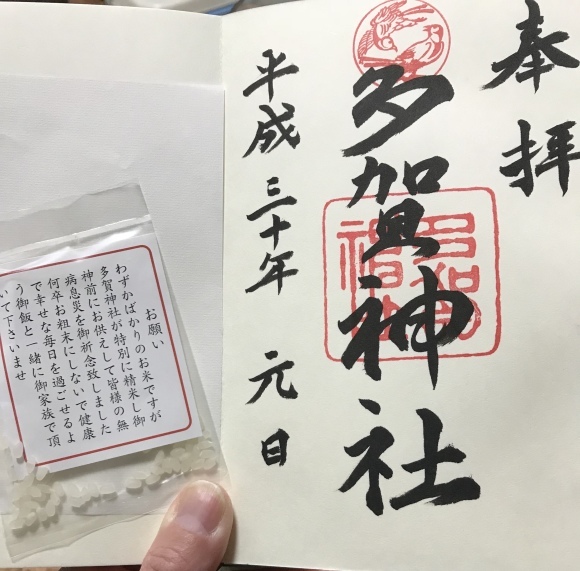 奉拝
多賀神社
平成三十年 元日
お願い
わずかばかりのお米ですが
多賀神社が特別に精米し御
神前にお供えして皆様の無
病息災を御祈念致しました
何卒お粗末にしないで健康
で幸せな毎日を過ごせるよ
う御飯と一緒に御家族で頂
いて下さいませ